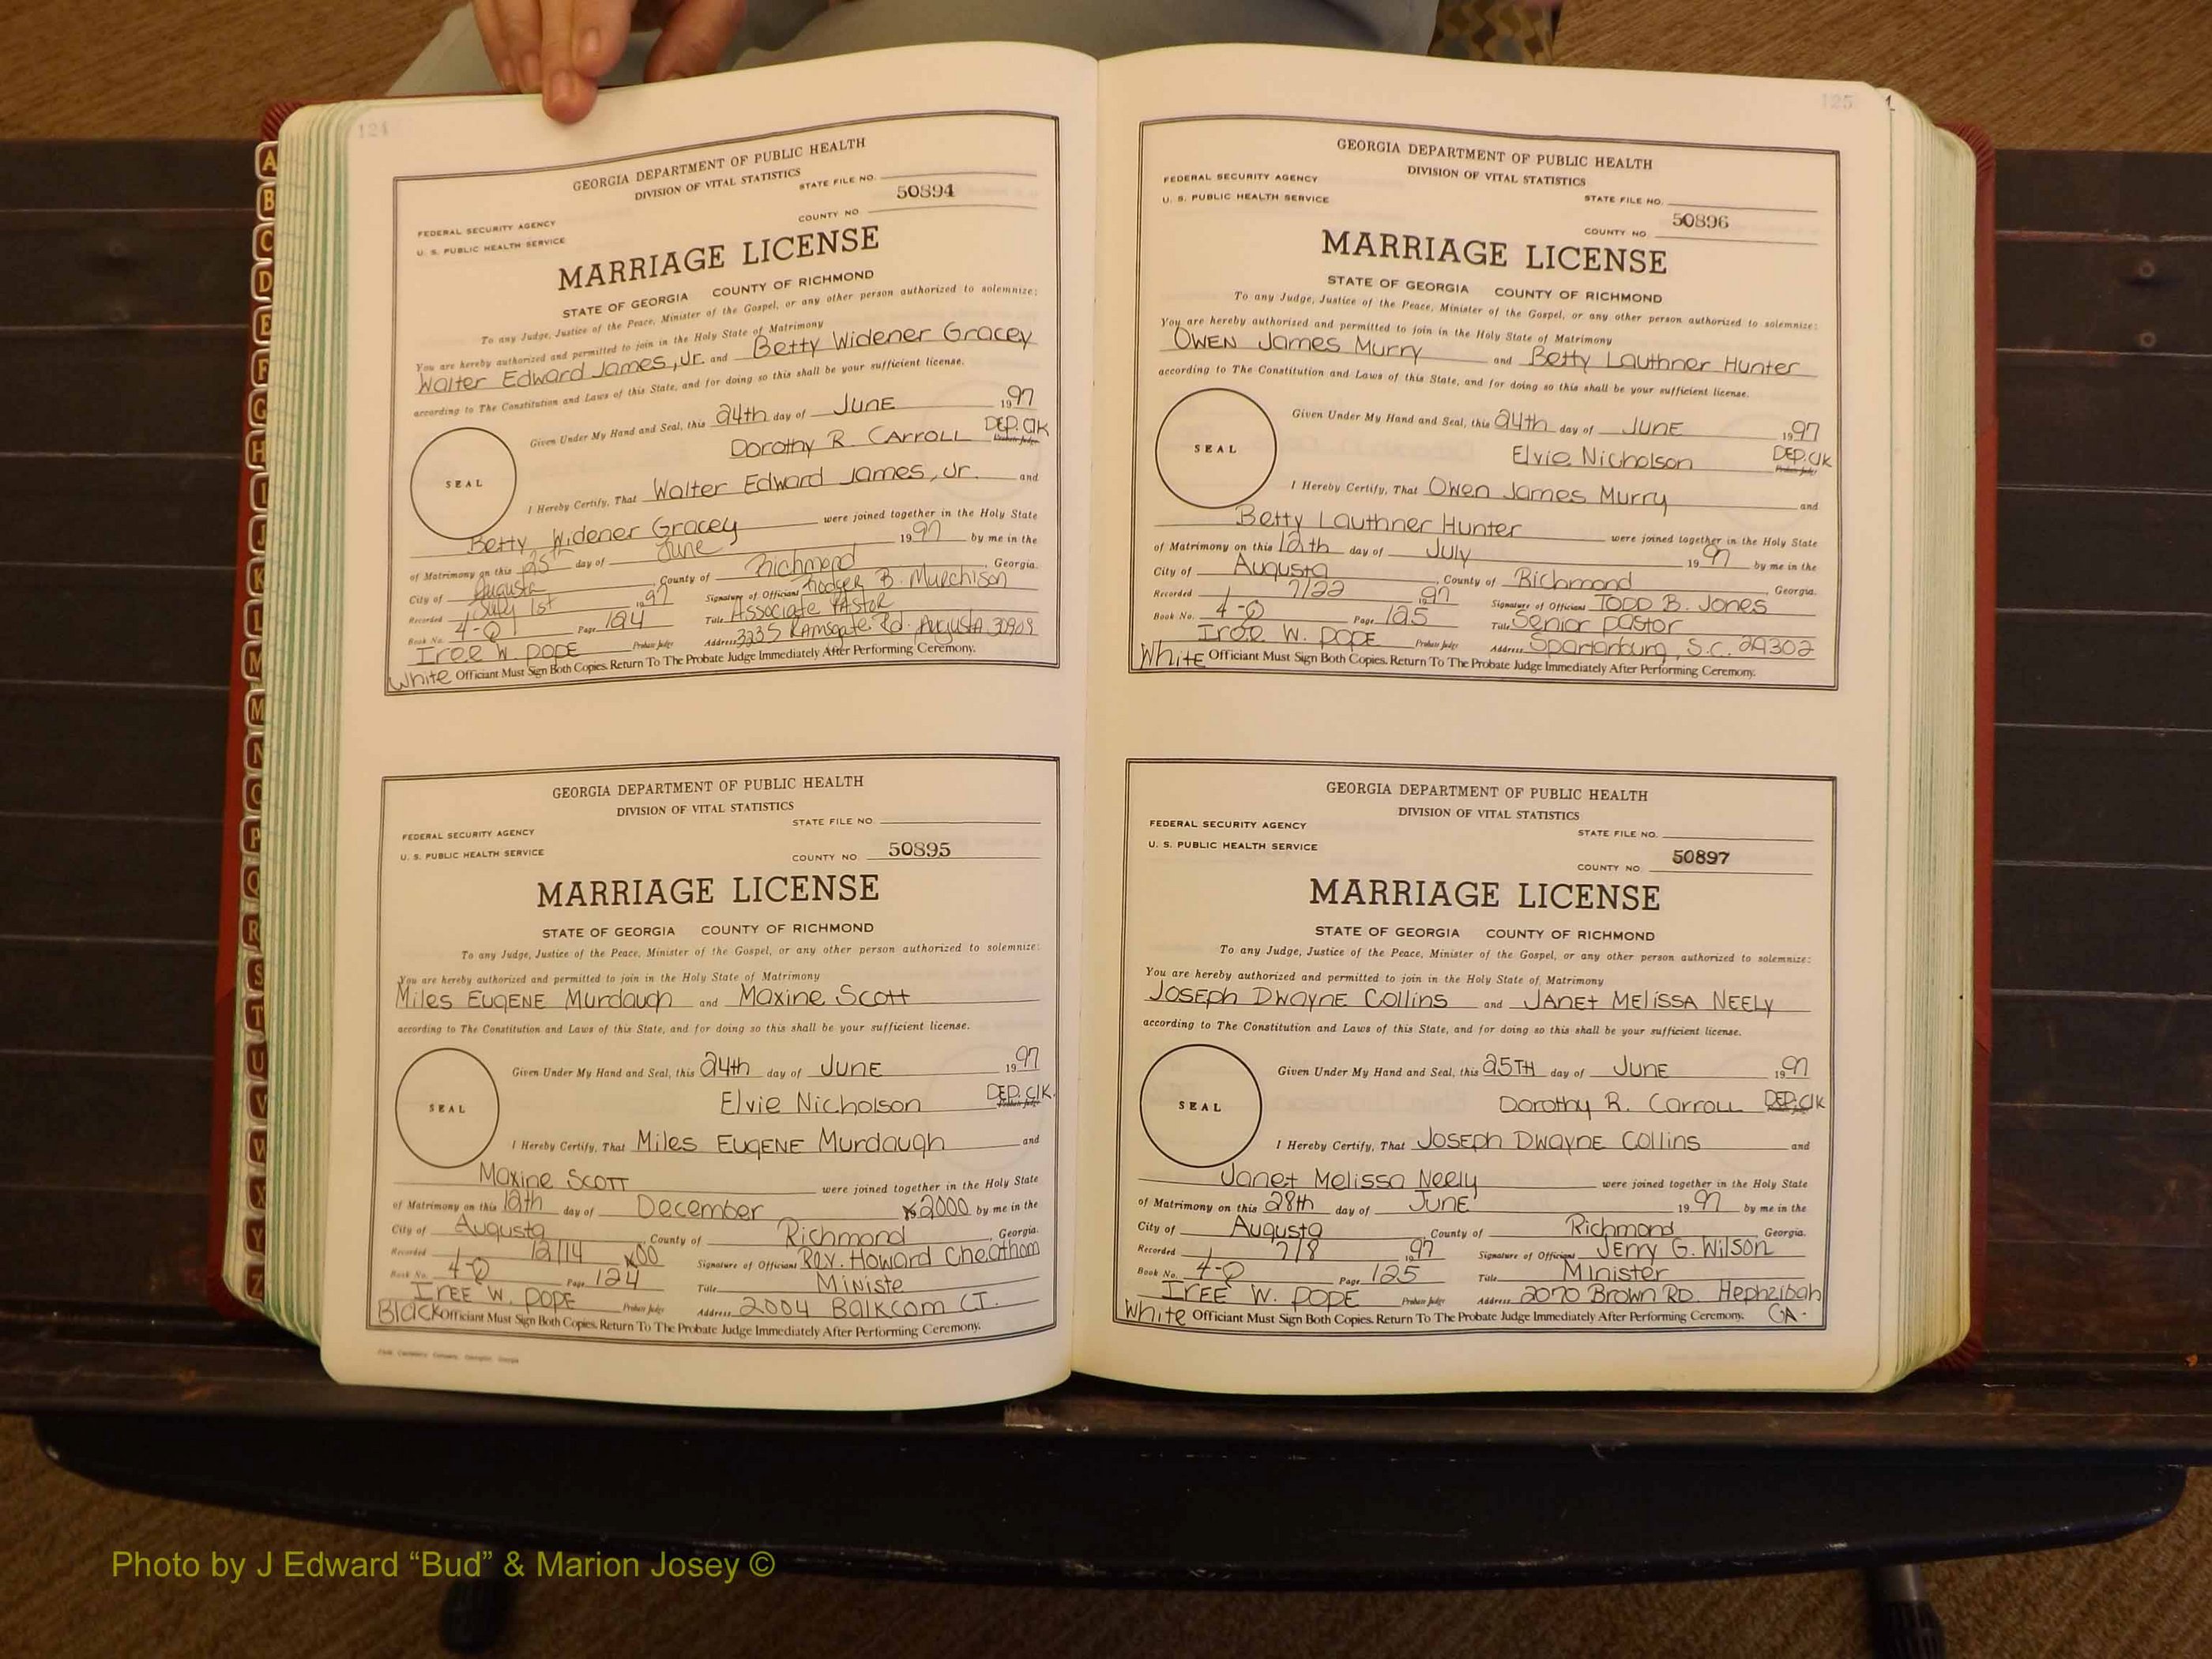 124
GEORGIA DEPARTMENT OF PUBLIC HEALTH
DIVISION OF VITAL STATISTICS
STATE FILE NO.
FEDERAL SECURITY AGENCY
U. S. PUBLIC HEALTH SERVICE
COUNTY NO 50894
MARRIAGE LICENSE
STATE OF GEORGIA COUNTY OF RICHMOND
To any Judge, Justice of the Peace, Minister of the Gospel, or any other person authorized to solemnize:
You are hereby authorized and permitted to join in the Holy State of Matrimony
Walter Edward James, Jr. and Betty Widener Gracey
according to The Constitution and Laws of this State, and for doing so this shall be your sufficient license.
Given Under My Hand and Seal, this 24th day of JUNE 1997
Dorothy R. CARROLL DEP. ClK
Probate Judge
SEAL
I Hereby Certify, That Walter Edward James, Jr. and
Betty Widener Gracey were joined together in the Holy State
of Matrimony on this 25th day of June 1997 by me in the
City of Augusta, County of Richmond, Georgia.
Recorded July 1st 1997 Signature of Officiant Rodger B. Murchison
Book No. 4-Q Page 124 Title Associate PAstor
Iree W. POPE Probate Judge Address 3235 Ramsgate Rd. Augusta 30909
White Officiant Must Sign Both Copies. Return To The Probate Judge Immediately After Performing Ceremony.
GEORGIA DEPARTMENT OF PUBLIC HEALTH
DIVISION OF VITAL STATISTICS
STATE FILE NO.
FEDERAL SECURITY AGENCY
U. S. PUBLIC HEALTH SERVICE
COUNTY NO 50895
MARRIAGE LICENSE
STATE OF GEORGIA COUNTY OF RICHMOND
To any Judge, Justice of the Peace, Minister of the Gospel, or any other person authorized to solemnize:
You are hereby authorized and permitted to join in the Holy State of Matrimony
Miles EUGENE Murdaugh and Maxine Scott
according to The Constitution and Laws of this State, and for doing so this shall be your sufficient license.
Given Under My Hand and Seal, this 24th day of JUNE 1997
Elvie Nicholson DEP. ClK.
Probate Judge
SEAL
I Hereby Certify, That Miles EUGENE Murdaugh and
Maxine SCOTT were joined together in the Holy State
of Matrimony on this 12th day of December 2000 by me in the
City of Augusta, County of Richmond, Georgia.
Recorded 12/14 00 Signature of Officiant Rev. Howard Cheathom
Book No. 4-Q Page 124 Title Ministe
IREE W. POPE Probate Judge Address 2004 Balkcom CT.
Black Officiant Must Sign Both Copies. Return To The Probate Judge Immediately After Performing Ceremony.
125
1
GEORGIA DEPARTMENT OF PUBLIC HEALTH
DIVISION OF VITAL STATISTICS
FEDERAL SECURITY AGENCY
U. S. PUBLIC HEALTH SERVICE
STATE FILE NO.
COUNTY NO. 50896
MARRIAGE LICENSE
STATE OF GEORGIA COUNTY OF RICHMOND
To any Judge, Justice of the Peace, Minister of the Gospel, or any other person authorized to solemnize:
You are hereby authorized and permitted to join in the Holy State of Matrimony
OWEN James Murry and Betty Lauthner Hunter
according to The Constitution and Laws of this State, and for doing so this shall be your sufficient license.
Given Under My Hand and Seal, this 24th day of JUNE 1997
Elvie Nicholson DEP. ClK
Probate Judge
SEAL
I Hereby Certify, That Owen James Murry and
Betty Lauthner Hunter were joined together in the Holy State
of Matrimony on this 12th day of July 1997 by me in the
City of Augusta, County of Richmond, Georgia.
Recorded 7/22 1997 Signature of Officiant TODD B. Jones
Book No. 4-Q Page 125 Title Senior pastor
Iree W. POPE Probate Judge Address Spartanburg, S.C. 29302
White Officiant Must Sign Both Copies. Return To The Probate Judge Immediately After Performing Ceremony.
GEORGIA DEPARTMENT OF PUBLIC HEALTH
DIVISION OF VITAL STATISTICS
FEDERAL SECURITY AGENCY
STATE FILE NO.
U. S. PUBLIC HEALTH SERVICE
COUNTY NO 50897
MARRIAGE LICENSE
STATE OF GEORGIA COUNTY OF RICHMOND
To any Judge, Justice of the Peace, Minister of the Gospel, or any other person authorized to solemnize:
You are hereby authorized and permitted to join in the Holy State of Matrimony
JOSEPh DWAYNE COllins and JANEt MELISSA NEELY
according to The Constitution and Laws of this State, and for doing so this shall be your sufficient license.
Given Under My Hand and Seal, this 25TH day of JUNE 1997
Dorothy R. Carroll DEP. ClK
Probate Judge
SEAL
I Hereby Certify, That JOSEPh DWAYNE COllins and
Janet Melissa Neely were joined together in the Holy State
of Matrimony on this 28th day of JUNE 1997 by me in the
City of Augusta, County of Richmond, Georgia.
Recorded 7/8 1997 Signature of Officiant Jerry G. Wilson
Book No. 4-Q Page 125 Title Minister
IREE W. POPE Probate Judge Address 2070 Brown RD. Hephzibah
White Officiant Must Sign Both Copies. Return To The Probate Judge Immediately After Performing Ceremony. GA.
A
B
C
D
E
F
G
H
I
J
K
L
M
M
N
O
P
Q
R
S
T
U
V
W
X
Y
Z
Photo by J Edward “Bud” & Marion Josey ©